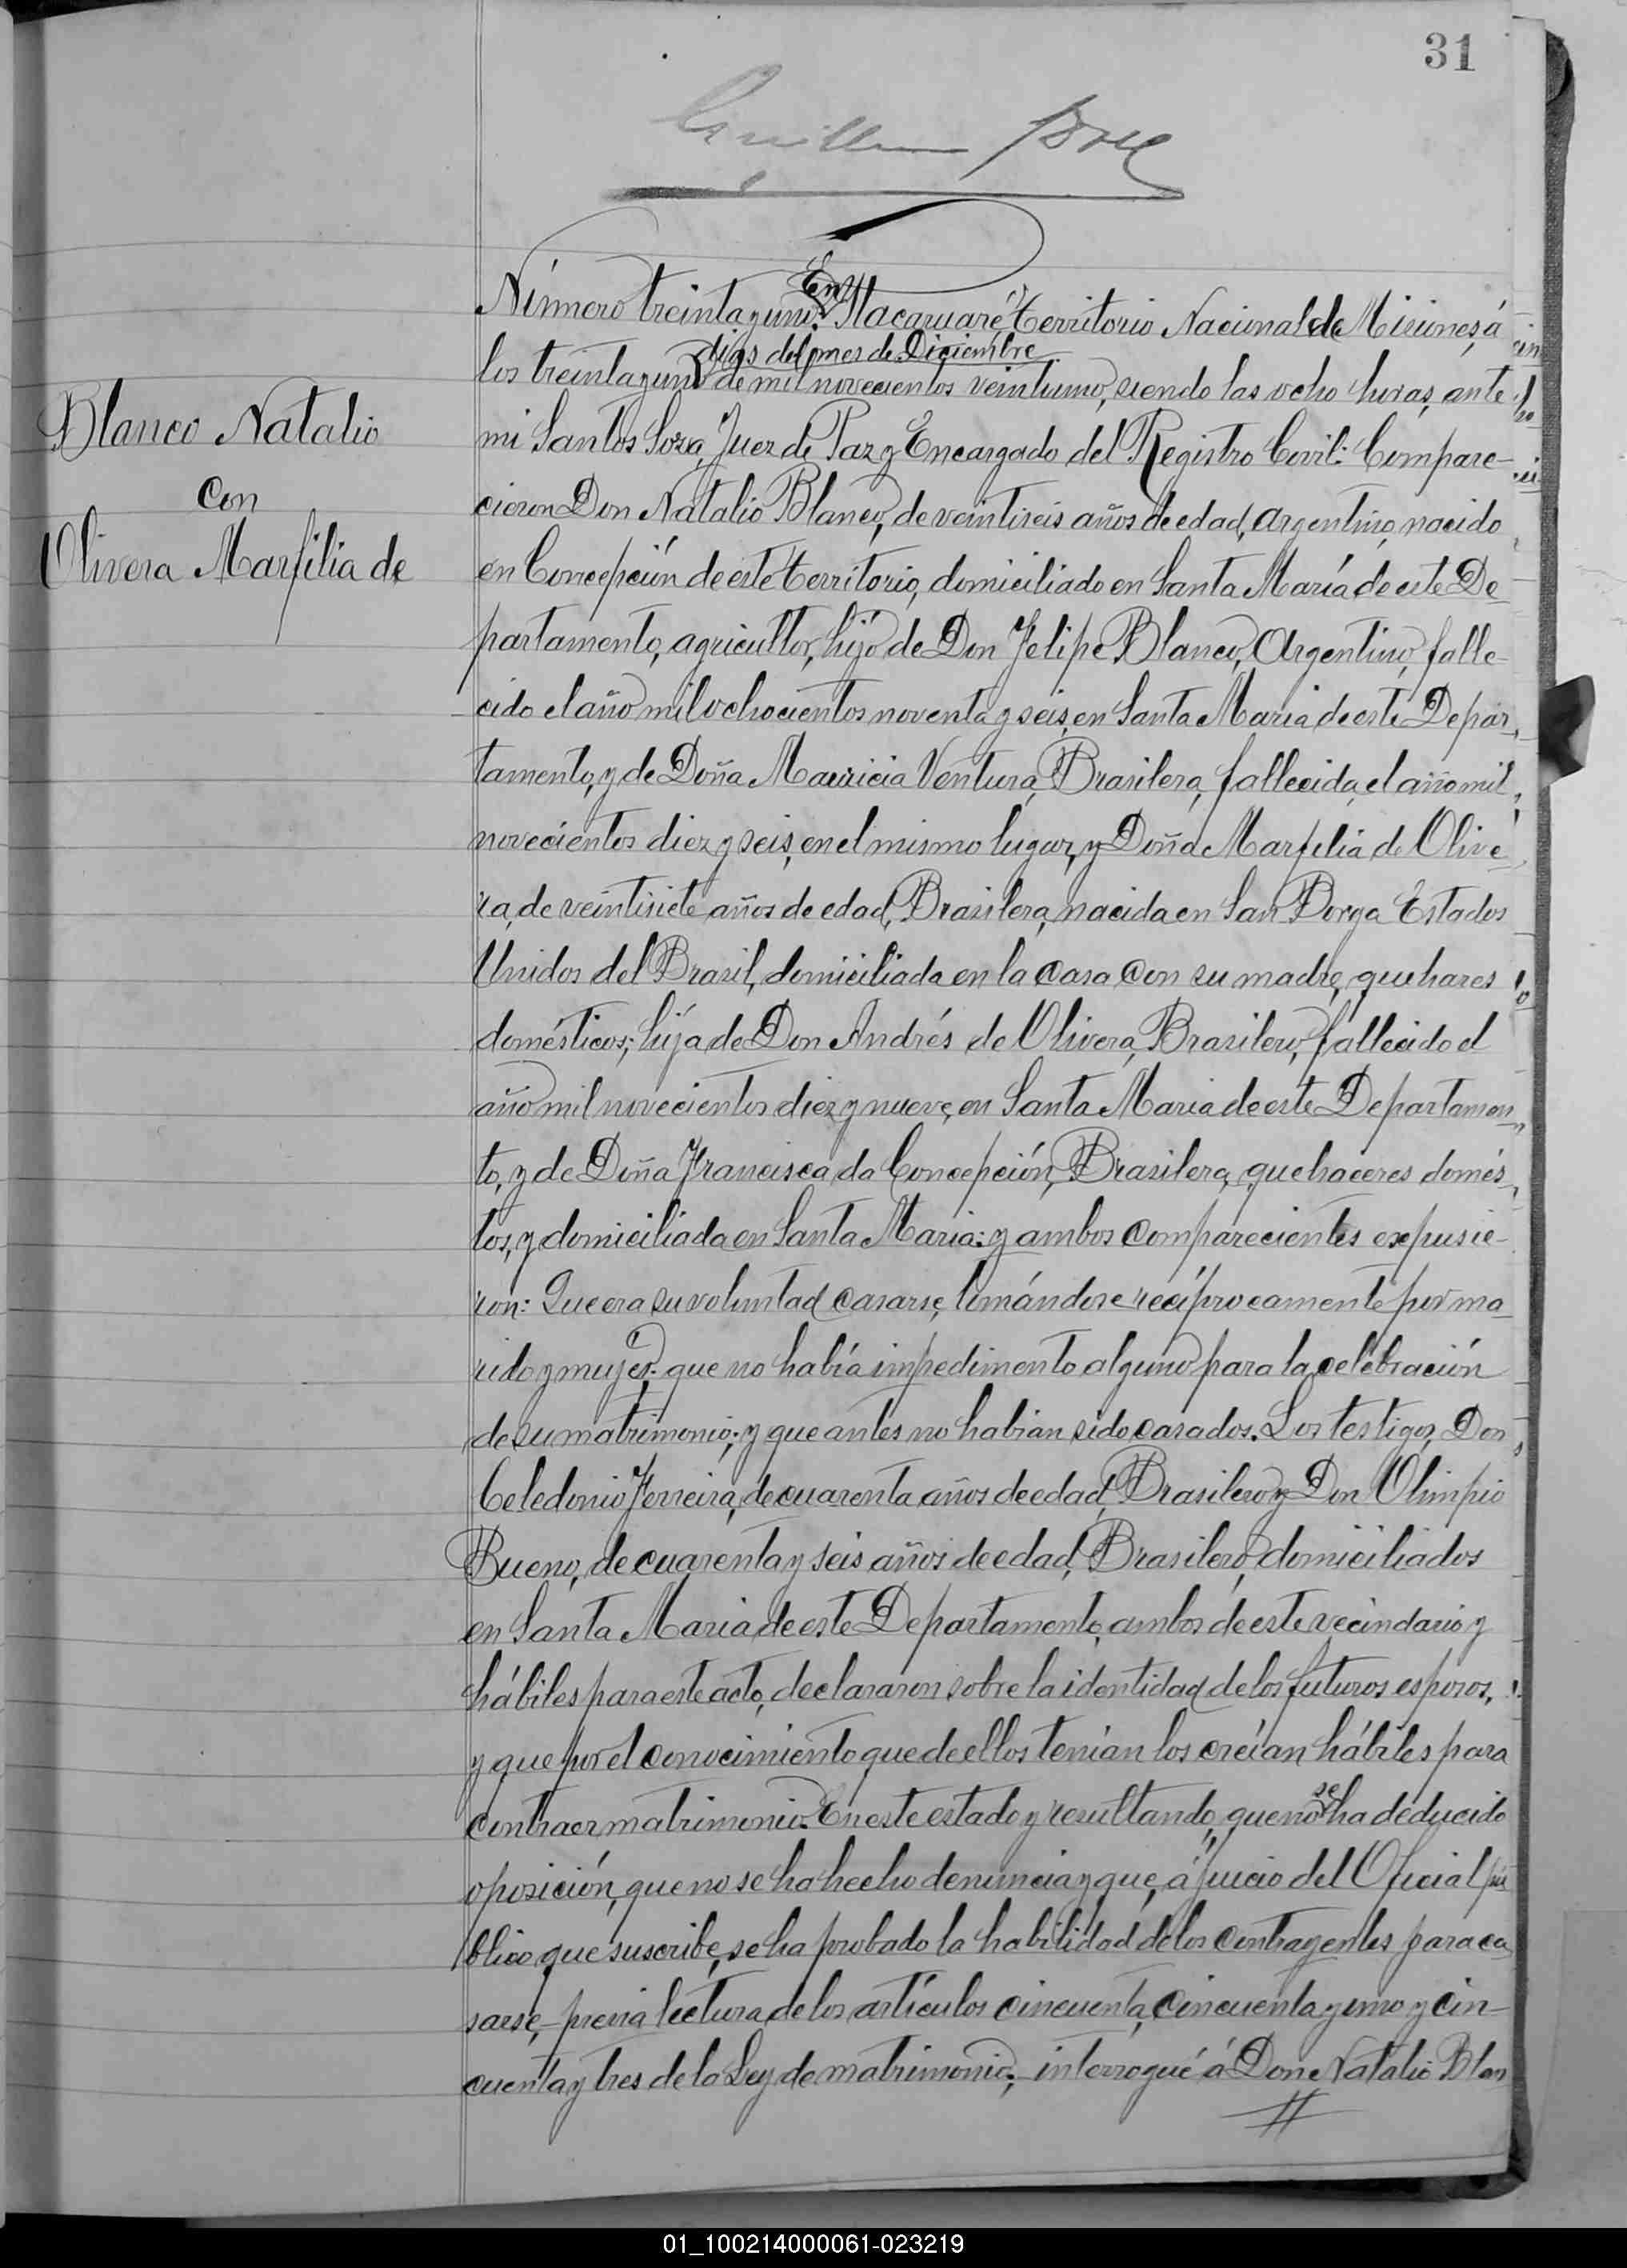 31
Número treinta y uno. En Itacaruaré, Territorio Nacional de Misiones, á
los treinta y un días del mes de Diciembre de mil novecientos veintiuno, siendo las ocho horas, ante
Blanco Natalio
con
Olivera Marfilia de
mi Santos Soza, Juez de Paz y Encargado del Registro Civil: Compare-
cieron Don Natalio Blanco, de veintiseis años de edad, argentino, nacido
en Concepción de este territorio, domiciliado en Santa María de este De-
partamento, agricultor, hijo de Don Felipe Blanco, Argentino, falle-
cido el año mil ochocientos noventa y seis, en Santa Maria de este Depar-
tamento, y de Doña Mauricia Ventura, Brasilera, fallecida, el año mil
novecientos diez y seis, en el mismo lugar, y Doña Marfilia de Olive-
ra, de veintisiete años de edad, Brasilera, nacida en San Borga Estados
Unidos del Brasil, domiciliada en la casa con su madre, quehares
domésticos; hija de Don Andrés de Olivera, Brasilero, fallecido el
año mil novecientos diez y nueve, en Santa Maria de este Departamen-
to, y de Doña Francisca da Concepción, Brasilera, quehaceres domés-
tos, y domiciliada en Santa Maria: y ambos comparecientes expusie-
ron: Que era su voluntad casarse, tomándose recíprocamente por ma-
rido y mujer: que no había impedimento alguno para la celebración
de su matrimonio; y que antes no habian sido casados. Los testigos, Don
Celedonio Ferreira, de cuarenta años de edad, Brasilero y Don Olimpio
Bueno, de cuarenta y seis años de edad, Brasilero, domiciliados
en Santa Maria de este Departamento, ambos de este vecindario y
hábiles para este acto, declararon sobre la identidad de los futuros esposos,
y que por el conocimiento que de ellos tenían los creían hábiles para
contraer matrimonio. En este estado y resultando, que no se ha deducido
oposición, que no se ha hecho denuncia y que, á juicio del Oficial pú
blico que suscribe, se ha probado la habilidad de los contrayentes para ca
sarse, - previa lectura de los artículos cincuenta, cincuenta y uno y cin-
cuenta y tres de la Ley de matrimonio; - interrogué á Don Natalio Blan
01_100214000061-023219